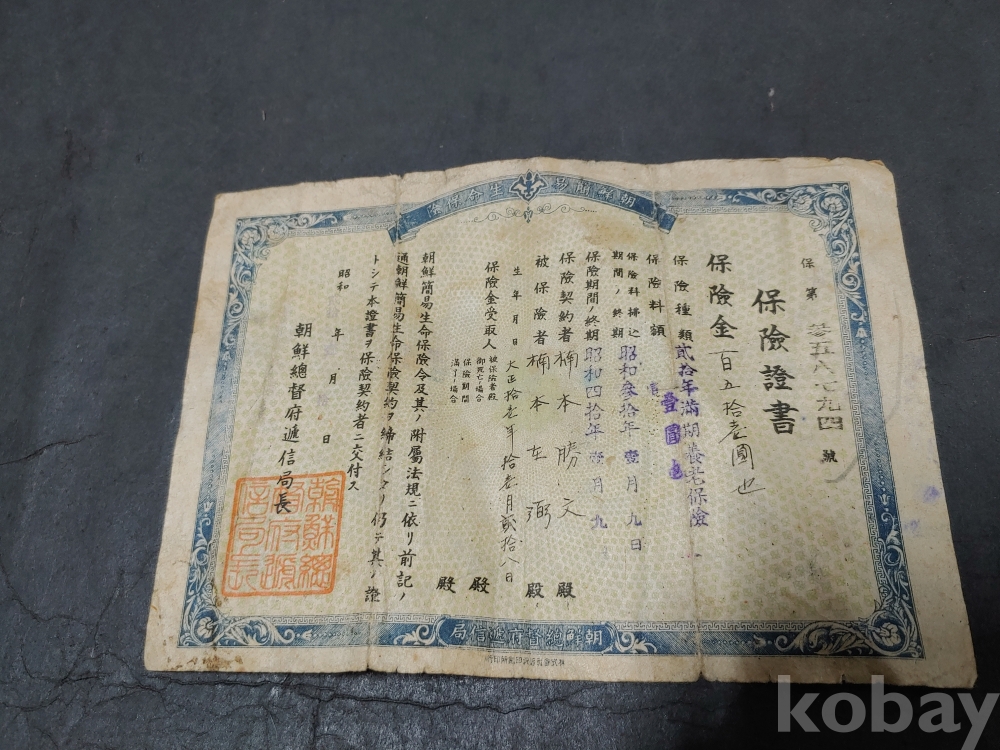 朝鮮簡易生命保險
保第參五八七九四號
保險證書
保險金 百五拾壹圓也
保險種類 貳拾年滿期養老保險
保險料額 壹圓也
保險料拂込期間ノ終期 昭和參拾年壹月九日
保險期間ノ終期 昭和四拾年壹月九
保險契約者 楠本勝文 殿
被保險者 楠本左弼 殿
生年月日 大正拾壹年拾壹月貳拾八日
保險金受取人
被保險者殿御死亡ノ場合 殿
保險期間滿了ノ場合 殿
朝鮮簡易生命保險令及其ノ附屬法規ニ依リ前記ノ
通朝鮮簡易生命保險契約ヲ締結シタリ仍テ其ノ證
トシテ本證書ヲ保險契約者ニ交付ス
昭和 年 月 日
朝鮮總督府遞信局長
朝鮮總督府遞信局
kobay